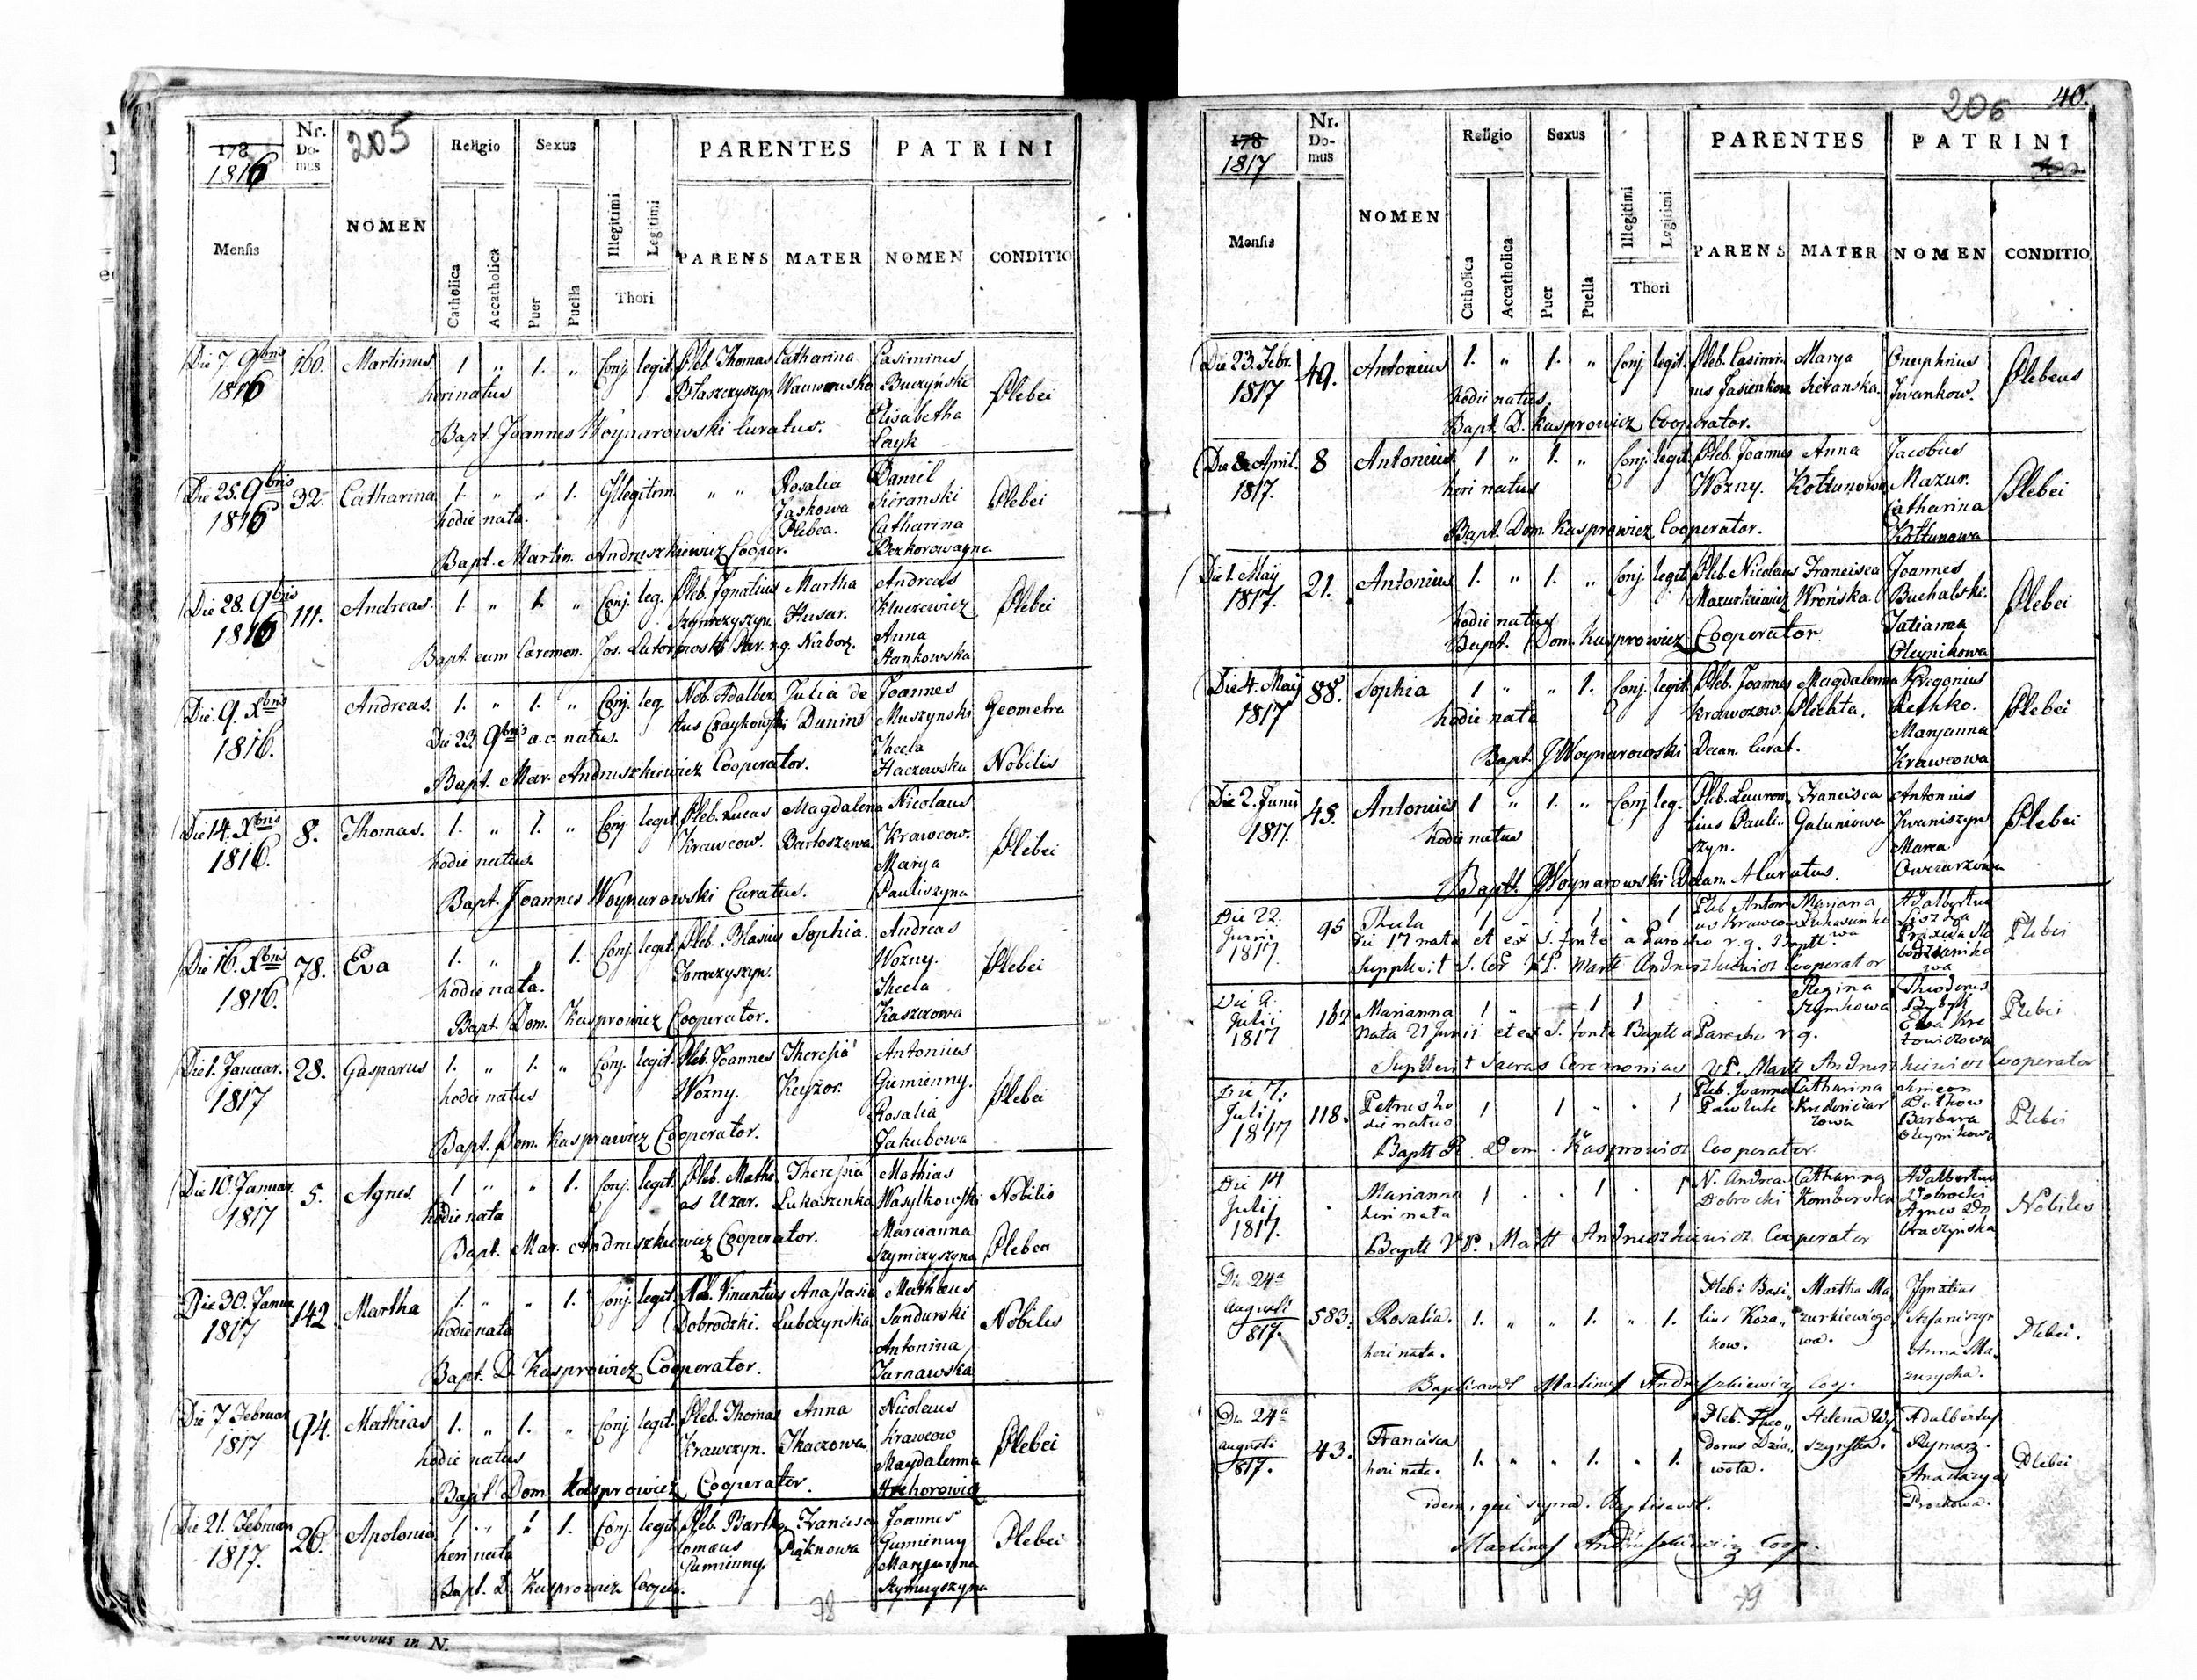 205
178
1816
Nr. Do-mus
Religio
Sexus
PARENTES
PATRINI
Mensis
NOMEN
Catholica
Accatholica
Puer
Puella
Illegitimi
Legitimi
Thori
PARENS
MATER
NOMEN
CONDITIO
Die 7. 9bris 160. Martinus 1 „ 1. „ Conj. legit. Pleb. Thomas Catharina Casimirus
1816 heri natus Błaszczyszyn Buczyński Plebei
Elisabetha
Bapt. Joannes Woynarowski Curatus. Layk
Die 25. 9bris 32. Catharina 1. „ „ 1. Illegitim. „ „ Rosalia Daniel
1816 hodie nata. Jaskowa Sieranski Plebei
Plebea. Catharina
Bapt. Martin. Andruszkiewicz Cooper. Bezkorowayna
Die 28. 9bris 111. Andreas. 1. „ 1. „ Conj. leg. Pleb. Ignatius Martha Andreas
1816 Szymczyszyn. Husar. Kluczewicz Plebei
Anna
Bapt. cum Caremon. Jos. r. g. Stankowska
Die 9. Xbris Andreas. 1. „ 1. „ Conj. leg. Nob. Adalber- Julia de Joannes
1816. tus Czaykowski Dunins Muszynski Geometra
Die 23. 9bris a.c. natus. Thecla
Bapt. Mar. Andruszkiewicz Cooperator. Haczewska Nobilis
Die 14. Xbris 8. Thomas. 1. „ 1. „ Conj. legit. Pleb. Lucas Magdalena Nicolaus
1816. hodie natus. Krawcow. Bartoszowa Krawcow. Plebei
Marya
Bapt. Joannes Woynarowski Curatus. Pauliszyna
Die 16. Xbris 78. Eva 1. „ „ 1. Conj. legit. Pleb. Blasius Sophia. Andreas
1816. hodie nata. Tomczyszyn. Wozny. Plebei
Thecla
Bapt. Dom. Kasprowicz Cooperator. Kaszczowa
Die 1. Januar. 28. Gasparus 1. „ 1. „ Conj. legit. Pleb. Joannes Theresia Antonius
1817 hodie natus Wozny. Keyzor. Gumienny. Plebei
Rosalia
Bapt. Dom. Kasprowicz Cooperator. Jakubowa
Die 10. Januar. 5. Agnes. 1 „ „ 1. Conj. legit. Pleb. Mathi- Theresia Mathias
1817 hodie nata as Uzar. Łukaszenka Wasylkowski Nobilis
Marcianna
Bapt. Mar. Andruszkiewicz Cooperator. Szymczyszyna Plebea
Die 30. Januar. 142. Martha 1. „ „ 1. Conj. legit. Nob. Vincentius Anastasia Mathaeus
1817 hodie nata Dobrodzki. Lubczynska Sandurski Nobiles
Antonina
Bapt. D. Kasprowicz Cooperator. Tarnawska
Die 7. Februar. 94. Mathias 1. „ 1. „ Conj. legit. Pleb. Thomas Anna Nicolaus
1817 hodie natus Krawczyn. Tkaczowa Krawcow Plebei
Magdalenna
Bapt. Dom. Kasprowicz Cooperator. Archorowicz
Die 21. Februar. 26. Apolonia 1 „ „ 1. Conj. legit. Pleb. Bartho- Francisca Joannes
1817. heri nata lomaus Piątknowa Guminny Plebei
Gumienny. Maryanna
Bapt. D. Kasprowicz Cooper. Szymczyszyna
78
206
40.
178
1817
Nr. Do-mus
Religio
Sexus
PARENTES
PATRINI
Mensis
NOMEN
Catholica
Accatholica
Puer
Puella
Illegitimi
Legitimi
Thori
PARENS
MATER
NOMEN
CONDITIO
Die 23. Febr. 49. Antonius 1. „ 1. „ Conj. legit. Pleb. Casimi- Marya Onuphrius
1817 hodie natus. rus Jasienkow Sieranska. Iwankow. Plebeus
Bapt. D. Kasprowicz Cooperator.
Die 8. April. 8 Antonius 1 „ 1. „ Conj. legit. Pleb. Joannes Anna Jacobus
1817. heri natus Wozny. Kołtunowa Mazur. Plebei
Catharina
Bapt. Dom. Kasprowicz Cooperator. Kołtunowa
Die 1. Maij 21. Antonius 1. „ 1. „ Conj. legit. Pleb. Nicolaus Francisca Joannes
1817. hodie natus Mazurkiewicz Wrońska. Buchalski. Plebei
Tatianna
Bapt. Dom. Kasprowicz Cooperator. Oleynikowa
Die 4. Maij 88. Sophia 1 „ „ 1. Conj. legit. Pleb. Joannes Magdalenna Gregorius
1817 hodie nata Krawczow. Plichta. Leshko. Plebei
Maryanna
Bapt. J Woynarowski Decan. Curat. Krawcowa
Die 2. Junij 45. Antonius 1 „ 1. „ Conj. leg. Pleb. Lauren- Francisca Antonius
1817. hodie natus tius Pauli- Galuniowa Iwaniszyn Plebei
szyn. Maria
Bapt. J Woynarowski Decan. Curatus. Owczarzowa
Die 22. 95 Thecla 1 „ „ 1 „ 1 Pleb. Antoni- Mariana Adalbertus
Junii us Krawcow Lukasunko- Liszka Plebei
1817. Die 17 nata et ex S. fonte a Parocho r. g. Bapt. wa
Supplevit S. Cer VP. Mart Andruszkiewicz Cooperator
Die 2. 162 Marianna 1 „ „ 1 1 Regina Theodorus
Julii Szymkowa Eva Kre- Plebei
1817 Nata 21 Junij et ex S. fonte Bapt a Parocho r g.
Suplevit Sacras Ceremonias VP. Mart Andruszkiewicz Cooperator
Die 7. 118. Petrus ho- 1 1 „ „ 1 Pleb. Joannes Catharina Simeon
Julij die natus Pawluk Dutkow Plebei
1817 Barbara
Bapt R. Dom. Kasprowicz Cooperator. Oleynikowa
Die 14 Marianna 1 „ „ 1 „ 1 N. Andreas Catharina Adalbertus
Julij heri nata Dobrocki Dobrocki Nobiles
1817. Agnes Do-
Bapt VP. Mart Andruszkiewicz Cooperator braczynska
Die 24a
Augusti 583. Rosalia. 1. „ „ 1. „ 1. Pleb: Basi- Martha Ma- Ignatius
817. heri nata. lius Koza- zurkiewiczo- Stefaniszyn Plebei.
kow. wa. Anna Ma-
Baptisavit Martinus Andruszkiewicz Coop. zurycha.
Die 24a
Augusti 43. Francisca 1. „ „ 1. „ 1. Pleb. Theo- Helena Wy- Adalbertus
817. heri nata. dorus Dzia- szynska. Rymarz. Plebei
wota. Anastazya
idem, qui supra. Baptisavit. Prockowa.
Martinus Andruszkiewicz Coop.
79